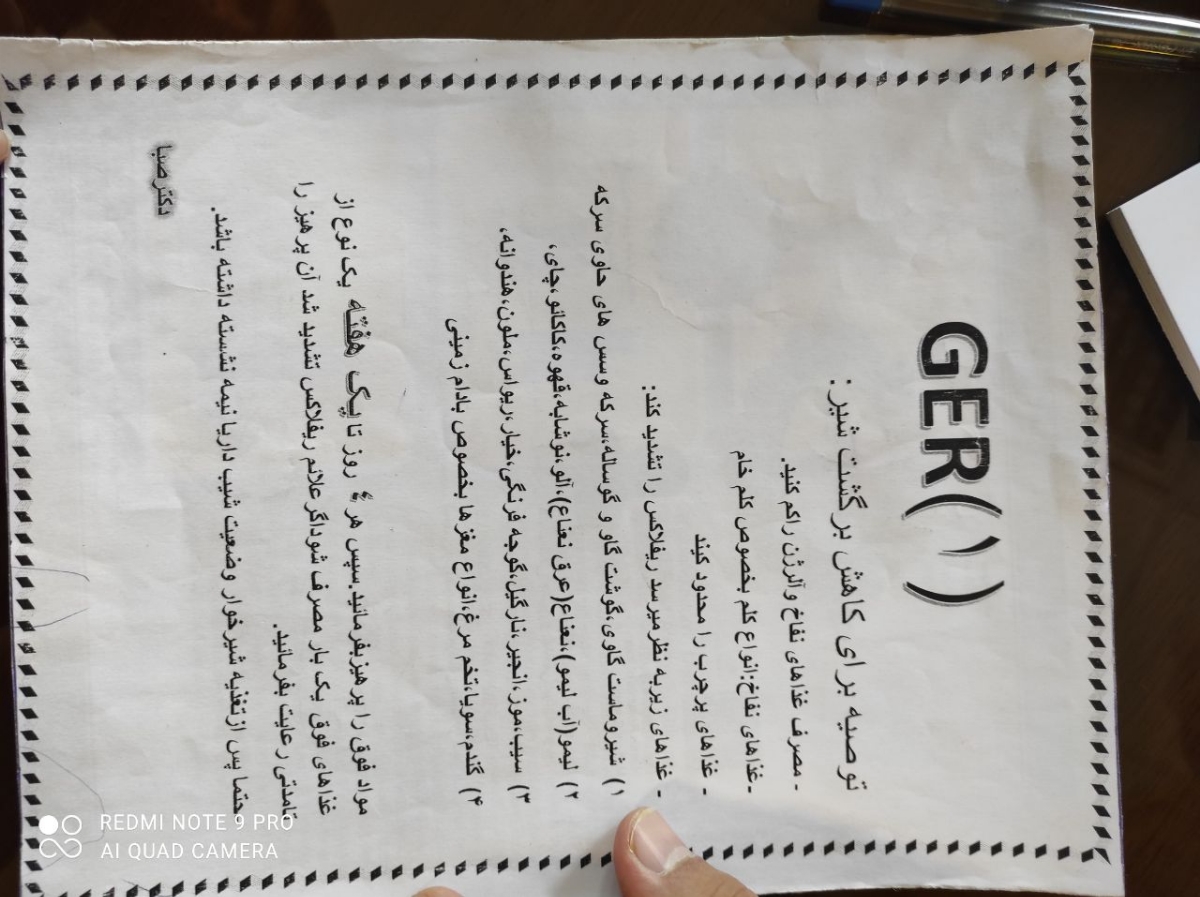 GER(۱)
توصیه برای کاهش برگشت شیر:
- مصرف غذاهای نفاخ و آلرژن راکم کنید.
-غذاهای نفاخ:انواع کلم بخصوص کلم خام
- غذاهای پرچرب را محدود کیند
- غذاهای زیربه نظرمیرسد ریفلاکس را تشدید کند:
۱) شیروماست گاوی،گوشت گاو و گوساله،سرکه وسس های حاوی سرکه
۲) لیمو(آب لیمو)،نعناع(عرق نعناع)،آلو،نوشابه،قهوه،کاکائو،چای،
۳) سیب،موز،انجیر،نارگیل،گوجه فرنگی،خیار،ریواس،ملون،هندوانه،
۴) گندم،سویا،تخم مرغ،انواع مغزها بخصوص بادام زمینی
مواد فوق را پرهیزبفرمائید.سپس هر۴ روز تا یک هفته یک نوع از
غذاهای فوق یک بار مصرف شوداگرعلائم ریفلاکس تشدید شد آن پرهیز را
تامدتی رعایت بفرمائید.
حتما پس ازتغذیه شیرخوار وضعیت شیب داریا نیمه نشسته داشته باشد.
دکترصبا
REDMI NOTE 9 PRO
AI QUAD CAMERA